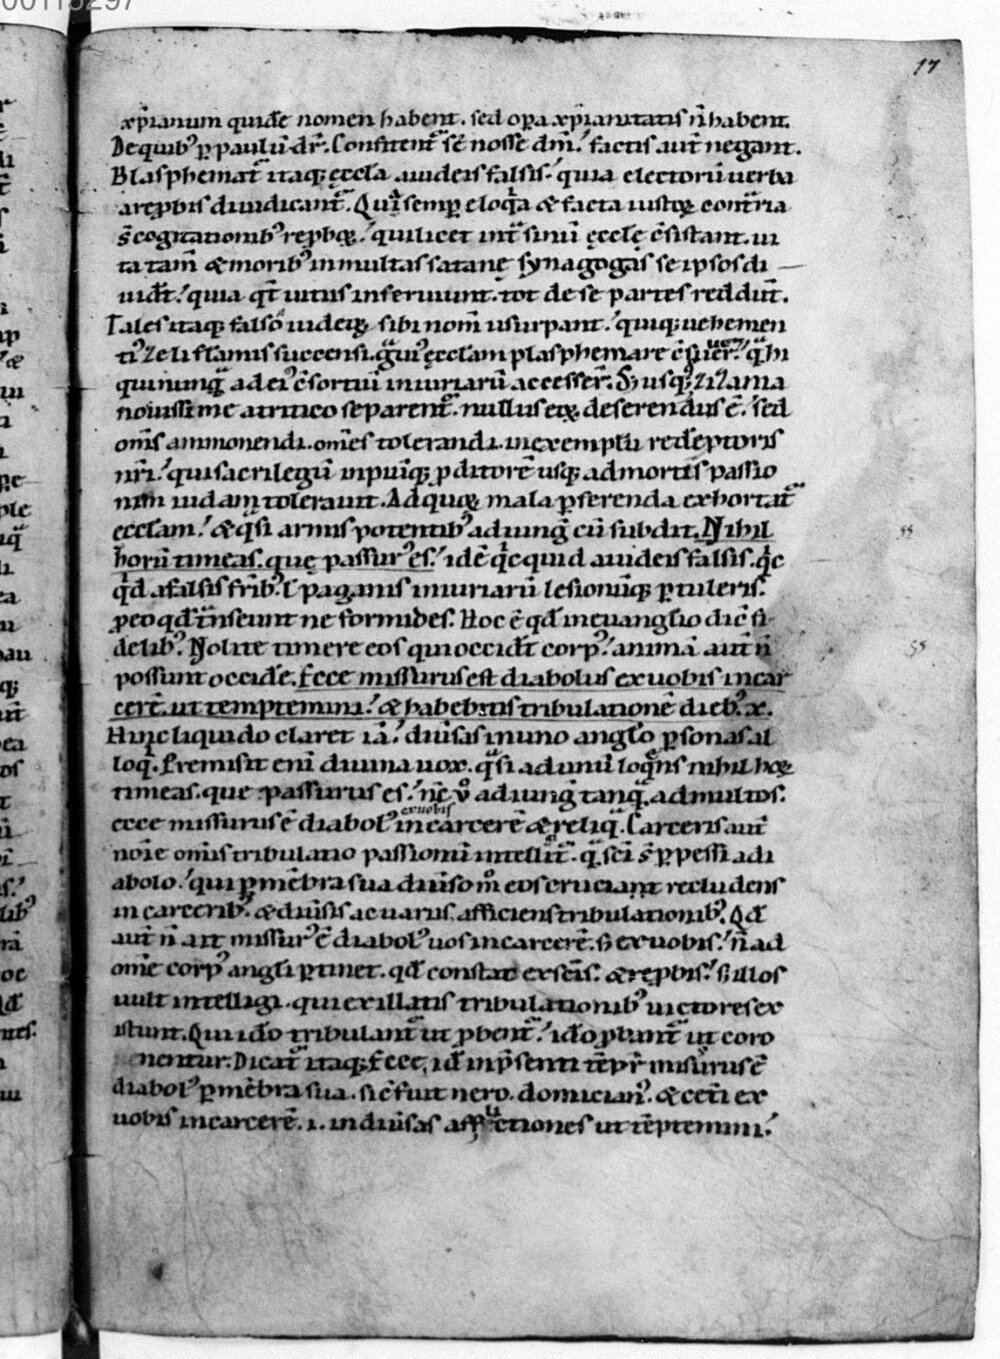 00115297
17
xp̄ianum quidē nomen habent. sed opa xp̄ianitatis n̄ habent.
De quibꝰ p paulū dr̄. Confitent᷑ sē nosse dm̄.' factis aut̄ negant.
Blasphemat᷑ itaq; ęccła a iudeis falsis.' quia electorū uerba
a rep̱bis diiudicant᷑. Quiᵃ semp eloqᵃ & facta iustoꝝ contᵃria
s̄ cogitationibꝰ rep̱boꝝ.' qui licet intᵃ sinū ęcclę c̄sistant. ui
ta tam̄ & moribꝰ in multas satanę synagogas se ipsos di
uidt̄.' quia qt̄ uitiis inseruiunt. tot de se partes reddūt.
Tales itaq; falso iudeoꝝ sibi nom̄ usurpant.' quiq; uehemen
tiꝰ zeli flāmis succensi. gᵃuiꝰ ęcclam plasphemare c̄sueuer̄.' qᵃ hi
qui nunqᵃ ad eiꝰ c̄sortiū iniuriarū accesser̄. Sꝫ usq; zizania
nouissime a tritico separent᷑. nullus eoꝝ deserendus ē.' sed
om̄s ammonendi. om̄es tolerandi. in exemplū redēptoris
nr̄i.' qui sacrilegū inpiūq; pditorē usq; ad mortis passio
nem iudam tolerauit. Ad quoꝝ mala p̱ferenda exhortat᷑
ecclam.' & qᵃsi armis potentibꝰ adiung̃ cū subdit. Nihil
horū timeas. quę passurꝰ es.' idē qͥcquid a iudeis falsis. qͥc
qͥd a falsis frībꝰ. ł paganis iniuriarū lesionūq; p̱tuleris.
p eo qd̄ inferunt ne formides. Hoc ē qd̄ in euanglio dic̄ fi
delibꝰ. Nolite timere eos qui occidt̄ corpꝰ.' animā aut̄ n̄
possunt occidē. Ecce missurus est diabolus ex uobis in car
cerē. ut temptemini.' & habebitis tribulationē diebꝰ. x.
Hinc liquido claret iā.' diūsas in uno anglo p̱sonas al
loq̄. Premisit enī diuina uox. qᵃsi ad unū loqͤns nihil hoꝝ
timeas. que passurus es.' nc̄ ů adiung̃ tanqᵃ ad multos.
ecce missurus ē diabolꝰ ex uobis in carcerē & reliq̄. Carceris aut̄
noīe om̄is tribulatio passionū intelłit᷑. qᵃ sc̄i s̄t ppessi a di
abolo.' qui p mēbra sua diūso m̊ eos cruciant recludens
in carceribꝰ. & diūsis ac uariis. afficiens tribulationibꝰ. Qd̄
aut̄ n̄ ait missurꝰ ē diabolꝰ uos in carcerē. sꝫ ex uobis.' n̄ ad
om̄e corpꝰ angli p̱tinet. qd̄ constat ex sc̄is. & rep̱bis.' sꝫ illos
uult intelligi. qui ex illatis tribulationibꝰ uictores ex
istunt. Qui ido tribulant᷑ ut p̱bent᷑.' ido p̱bant᷑ ut coro
nentur. Dicat᷑ itaq; Ecce, id in p̄senti tēpr̄ misurus ē
diabolꝰ p mēbra sua. sic̄ fuit nero. domicianꝰ. & cet̄i ex
uobis in carcerē. i. in diūsas afflictiones ut tēptemini.'